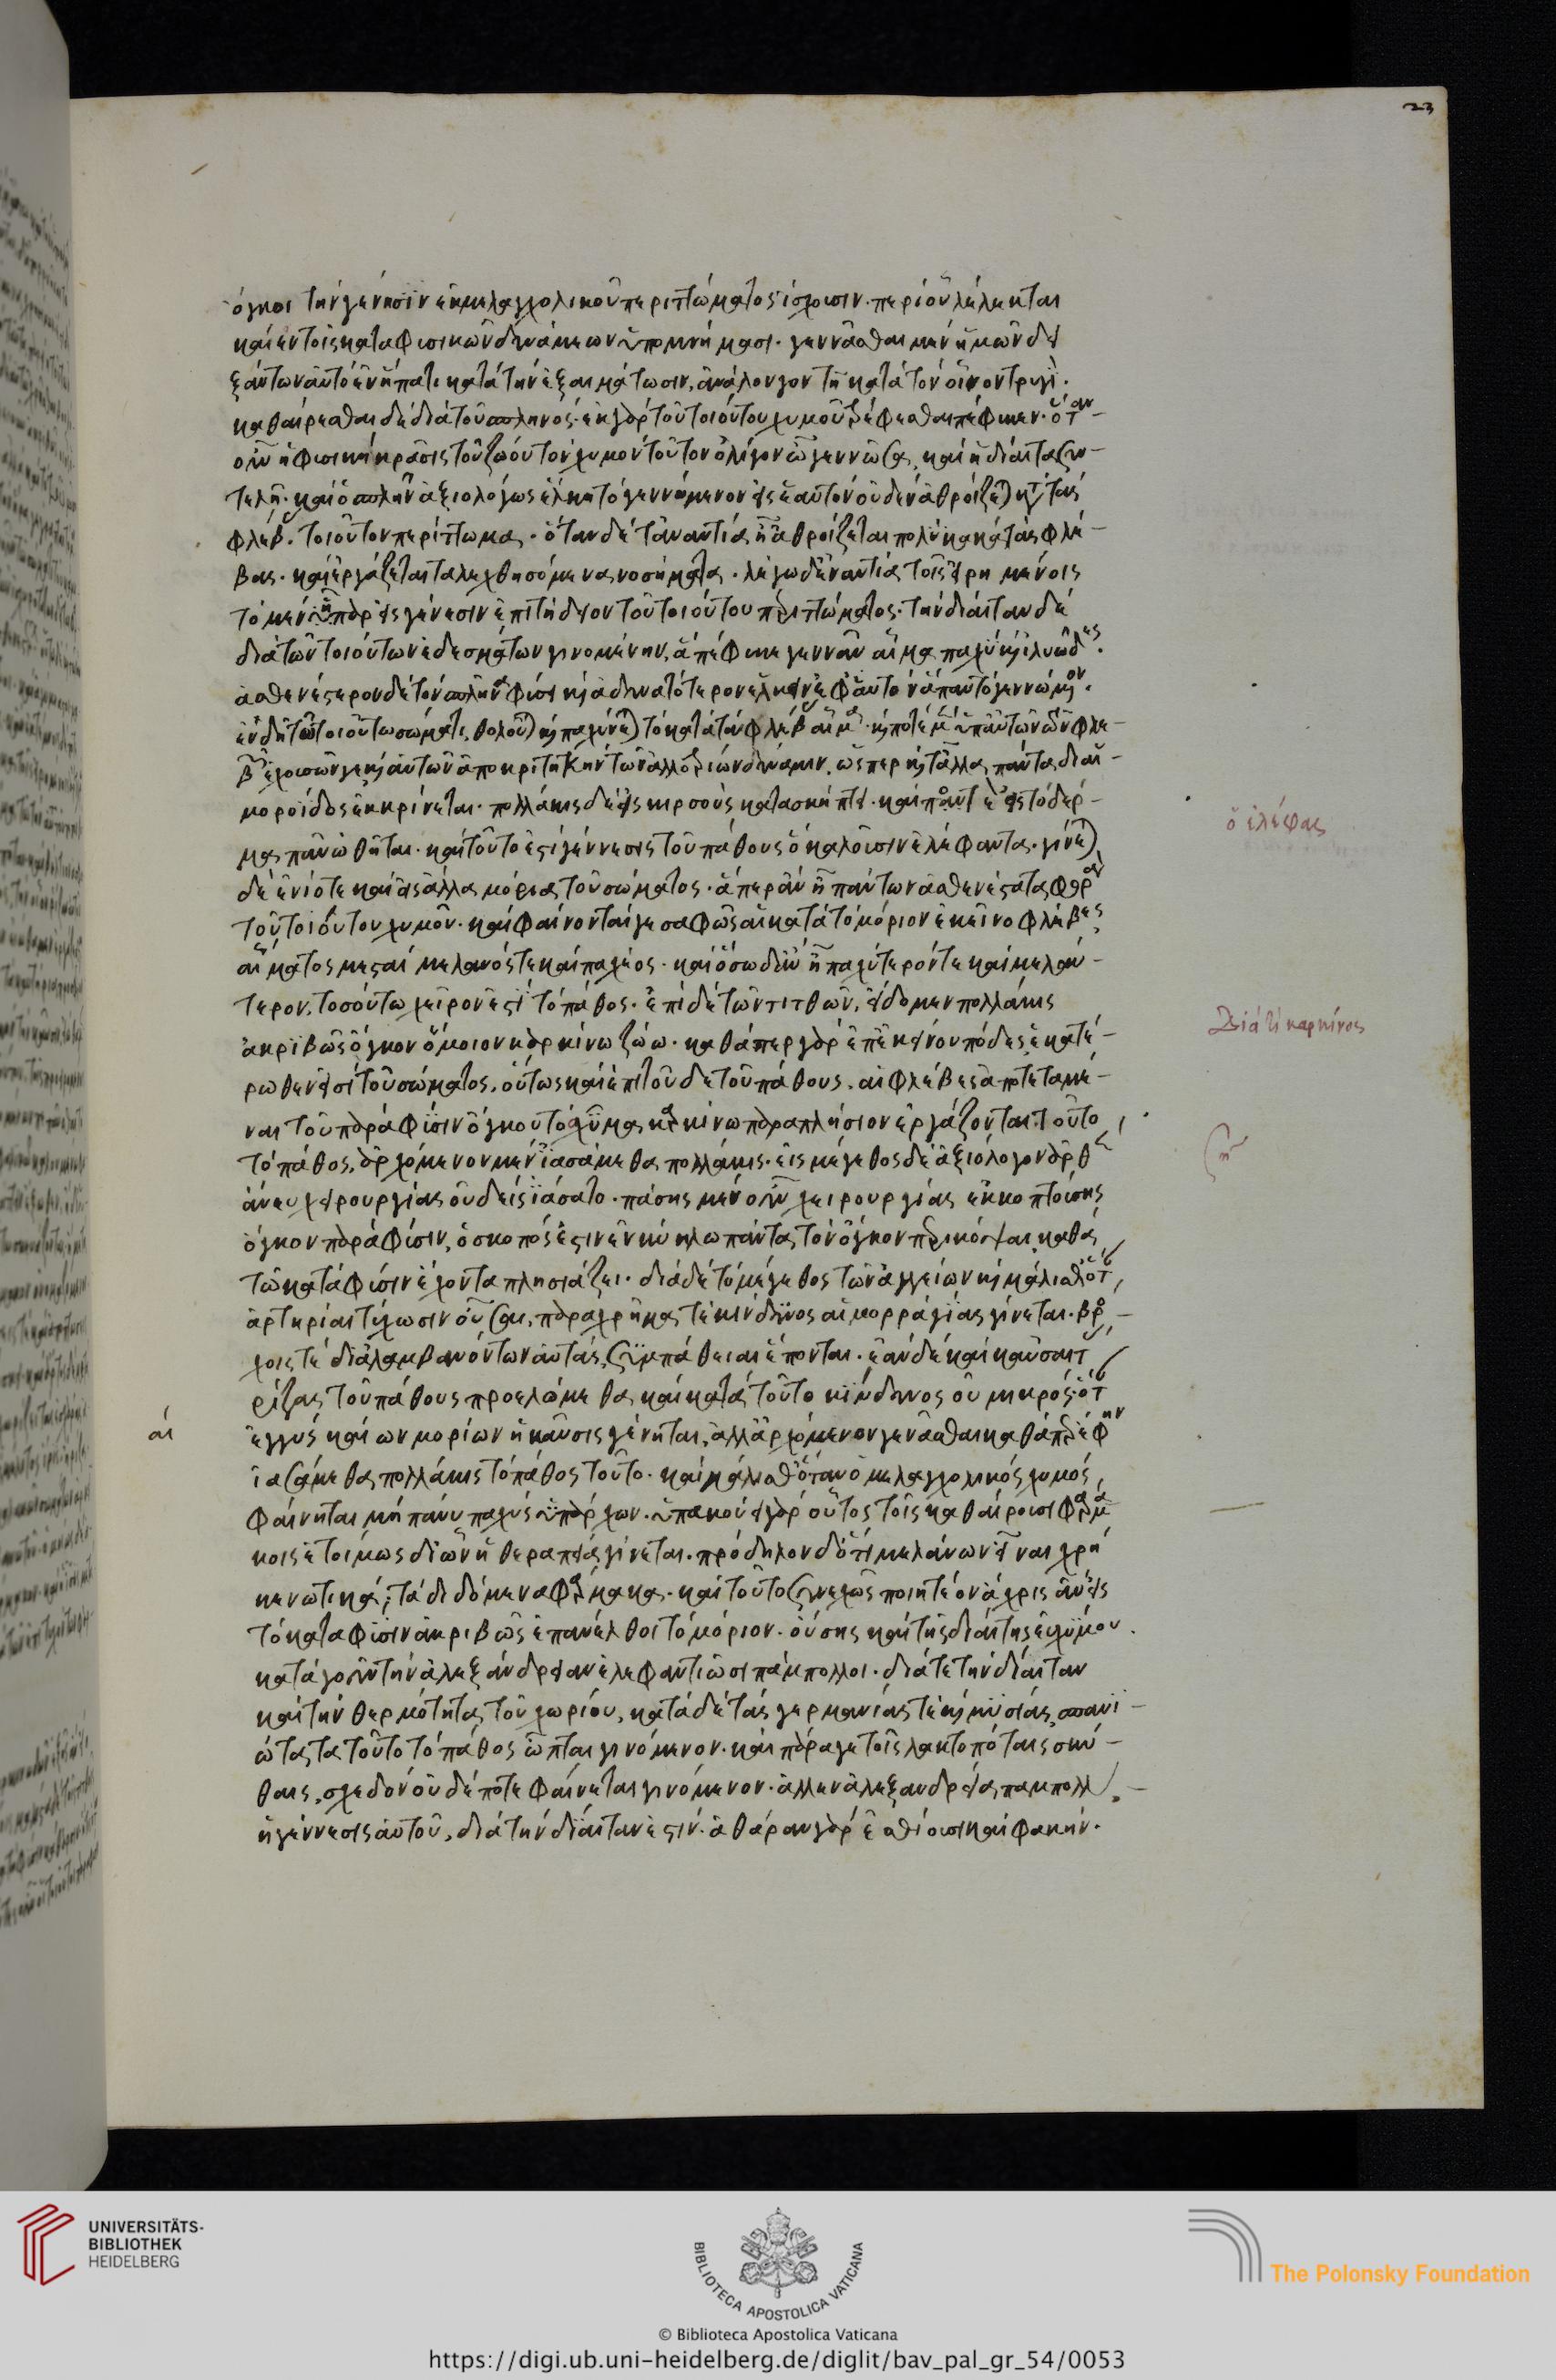 23
ὄγκοι τὴν γένεσιν ἐκ μελαγχολικοῦ περιττώματος ἴσχουσιν. περὶ οὗ λέλεκται
καὶ ἐν τοῖς κατὰ φυσικῶν δυνάμεων ὑπομνήμασι. γεννᾶσθαι μὲν ἡμῶν δει
ξάντων αὐτὸ ἐν ἥπατι κατὰ τὴν ἐξαιμάτωσιν, ἀνάλογον τῇ κατὰ τὸν οἶνον τρυγί.
καθαίρεσθαι δὲ διὰ τοῦ σπληνός. ἐκ γὰρ τοῦ τοιούτου χυμοῦ τρέφεσθαι πέφυκεν. ὅταν
οὖν ἡ φυσικὴ κρᾶσις τοῦ ζώου τὸν χυμὸν τοῦτον ὀλίγον ᾖ γεννῶσα, καὶ ἡ δίαιτα συν
τελῇ. καὶ ὁ σπλὴν ἀξιολόγως ἕλκῃ τὸ γεννώμενον εἰς ἑαυτὸν οὐδὲν ἀθροίζεται κατὰ τὰς
φλέβας τοιοῦτον περίττωμα. ὅταν δὲ τἀναντία ᾖ ἀθροίζεται πολὺ κατὰ τὰς φλέ
βας. καὶ ἐργάζεται τὰ λεχθησόμενα νοσήματα. λέγω δ' ἐναντία τοῖς εἰρημένοις
τὸ μὲν ἧπαρ εἰς γένεσιν ἐπιτήδειον τοῦ τοιούτου περιττώματος. τὴν δίαιταν δὲ
διὰ τῶν τοιούτων ἐδεσμάτων γινομένην, ἃ πέφυκε γεννᾶν αἷμα παχὺ καὶ ἰλυῶδες.
ἀσθενέστερον δὲ τὸν σπλῆνα φύσει καὶ ἀδυνατότερον ἕλκειν ἐφ' ἑαυτὸν ἅπαν τὸ γεννώμενον.
ἐν δὴ τῷ τοιούτω σώματι, θολοῦται καὶ παχύνεται τὸ κατὰ τὰς φλέβας αἷμα. καὶ ποτὲ μὲν ὑπ' αὐτῶν τῶν φλε
βῶν ἐχουσῶν γε καὶ αὐτῶν ἀποκριτικήν τῶν ἀλλοτρίων δύναμιν, ὥσπερ καὶ τἄλλα πάντα, δι' αἱ
μορροΐδος ἐκκρίνεται. πολλάκις δὲ εἰς κιρσοὺς κατασκήπτει. καὶ πάντ εἰς τὸ δέρ
μα πᾶν ὠθῆται. καὶ τοῦτο ἐστὶ γέννεσις τοῦ πάθους ὃ καλοῦσιν ἐλέφαντα. γίνεται
δὲ ἐνίοτε καὶ εἰς ἄλλα μόρια τοῦ σώματος. ἅπερ ἂν ᾖ πάντων ἀσθενέστατα φορὰ
τοῦ τοιούτου χυμοῦ. καὶ φαίνονταί γε σαφῶς αἱ κατὰ τὸ μόριον ἐκεῖνο φλέβες
αἵματος μεσταὶ μελανός τε καὶ παχέος. καὶ ὅσω δ' ἂν ᾖ παχύτερόν τε καὶ μελάν
τερον, τοσούτω χεῖρον ἐστὶ τὸ πάθος. ἐπὶ δὲ τῶν τιτθῶν, εἴδομεν πολλάκις
ἀκριβῶς ὄγκον ὅμοιον καρκίνω ζώω. καθάπερ γὰρ ἐπ' ἐκείνου πόδες ἑκατέ
ρωθεν εἰσὶ τοῦ σώματος, οὕτως καὶ ἐπὶ τοῦδε τοῦ πάθους, αἱ φλέβες ἀποτεταμέ
ναι τοῦ παρὰ φύσιν ὄγκου τὸ σχῆμα καρκίνω παραπλήσιον ἐργάζονται. τοῦτο
τὸ πάθος, ἀρχόμενον μὲν ἰασάμεθα πολλάκις. εἰς μέγεθος δὲ ἀξιόλογον ἀρθὲν
ἄνευ χειρουργίας οὐδεὶς ἰάσατο. πάσης μὲν οὖν χειρουργίας ἐκκοπτούσης
ὄγκον παρὰ φύσιν, ὁ σκοπός ἐστιν ἐν κύκλω πάντα τὸν ὄγκον περικόψαι, καθὰ
τῶ κατὰ φύσιν ἔχοντι πλησιάζει. διὰ δὲ τὸ μέγεθος τῶν ἀγγείων καὶ μάλισθ' ὅταν
ἀρτηρίαι τύχωσιν οὖσαι, παραχρῆμά τε κίνδυνος αἱμορραγίας γίνεται. βρό
χοις τὲ διαλαμβανόντων αὐτὰς, συμπάθειαι ἕπονται. ἐὰν δὲ καὶ καῦσαι τὰς
ῥίζας τοῦ πάθους προελώμεθα, καὶ κατὰ τοῦτο κίνδυνος οὐ μικρός. ὅταν
ἐγγὺς καιρίων μορίων ἡ καῦσις γένηται, ἀλλ' ἀρχόμενον γενᾶσθαι καθάπερ ἔφην
ἰασάμεθα πολλάκις τὸ πάθος τοῦτο. καὶ μάλισθ' ὅταν ὁ μελαγχολικὸς χυμὸς
φαίνηται μὴ πάνυ παχὺς ὑπάρχων. ὑπακούει γὰρ οὗτος τοῖς καθαίρουσι φαρμά
κοις ἑτοίμως δι' ὧν ἡ θεραπεία γίνεται. πρόδηλον δ' ὅτι μελάνων εἶναι χρὴ
κενωτικά, τὰ διδόμενα φάρμακα. καὶ τοῦτο συνεχῶς ποιητέον ἄχρις ἂν εἰς
τὸ κατὰ φύσιν ἀκριβῶς ἐπανέλθοι τὸ μόριον. οὔσης καὶ τῆς διαίτης εὐχύμου.
κατὰ γοῦν τὴν ἀλεξάνδρειαν ἐλεφαντιῶσι πάμπολλοι. διά τε τὴν δίαιταν
καὶ τὴν θερμότητα τοῦ χωρίου, κατὰ δὲ τὰς γερμανίας τὲ καὶ μυσίας σπανι
ώτατα τοῦτο τὸ πάθος ὦπται γινόμενον. καὶ παρά γε τοῖς λακτοπόταις σκύ
θαις, σχεδὸν οὐδέποτε φαίνεται γινόμενον. ἀλλ' ἐν ἀλεξανδρεία παμπόλλη
ἡ γέννεσις αὐτοῦ, διὰ τὴν δίαιταν ἐστίν. ἀθάραν γὰρ ἐσθίουσι καὶ φακήν.
ὁ ἐλέφας
Διὰ τί καρκίνος
αι
UNIVERSITÄTS-
BIBLIOTHEK
HEIDELBERG
BIBLIOTECA APOSTOLICA VATICANA
The Polonsky Foundation
© Biblioteca Apostolica Vaticana
https://digi.ub.uni-heidelberg.de/diglit/bav_pal_gr_54/0053